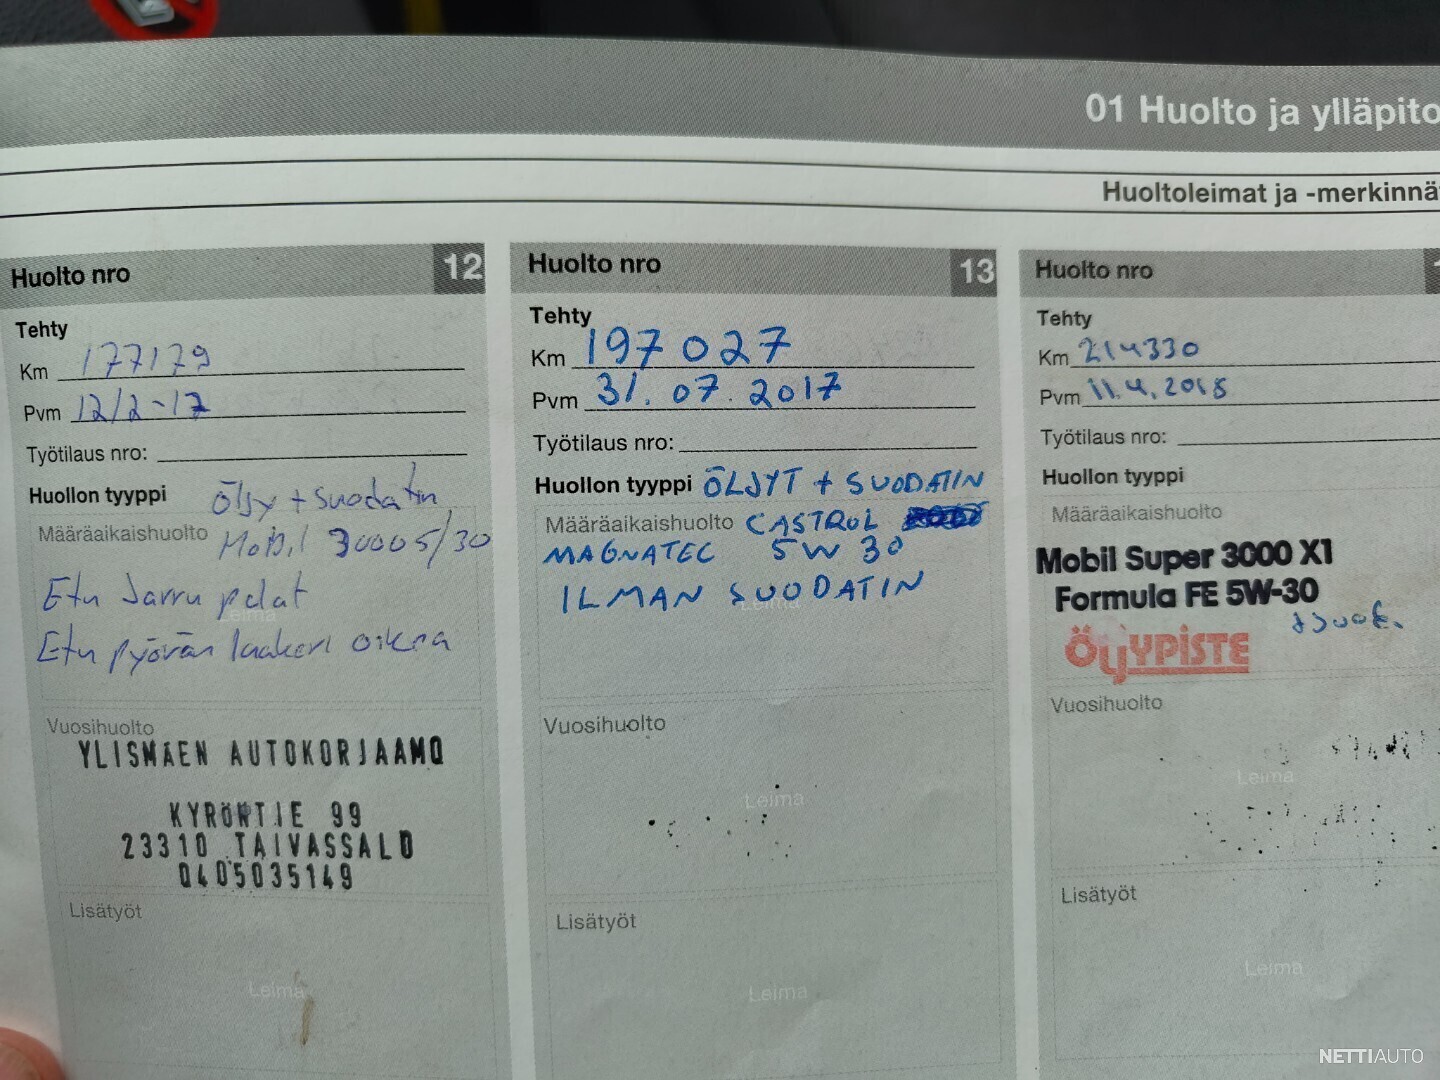 01 Huolto ja ylläpito
Huoltoleimat ja -merkinnä
Huolto nro 12
Tehty
Km 177179
Pvm 12/2-17
Työtilaus nro:
Huollon tyyppi Öljy + suodatin
Määräaikaishuolto Mobil 3000 5/30
Etu Jarru palat
Leima
Etu pyörän laakeri oikea
Vuosihuolto
YLISMÄEN AUTOKORJAAMO
KYRÖNTIE 99
23310 TAIVASSALO
0405035149
Lisätyöt
Leima
Huolto nro 13
Tehty
Km 197 027
Pvm 31.07.2017
Työtilaus nro:
Huollon tyyppi ÖLJYT + SUODATIN
Määräaikaishuolto CASTROL
MAGNATEC 5W 30
ILMAN SUODATIN
Leima
Vuosihuolto
Leima
Lisätyöt
Leima
Huolto nro
Tehty
Km 214330
Pvm 11.4.2018
Työtilaus nro:
Huollon tyyppi
Määräaikaishuolto
Mobil Super 3000 X1
Formula FE 5W-30
+suod.
ÖljyPISTE
Vuosihuolto
Leima
Lisätyöt
Leima
NETTIAUTO